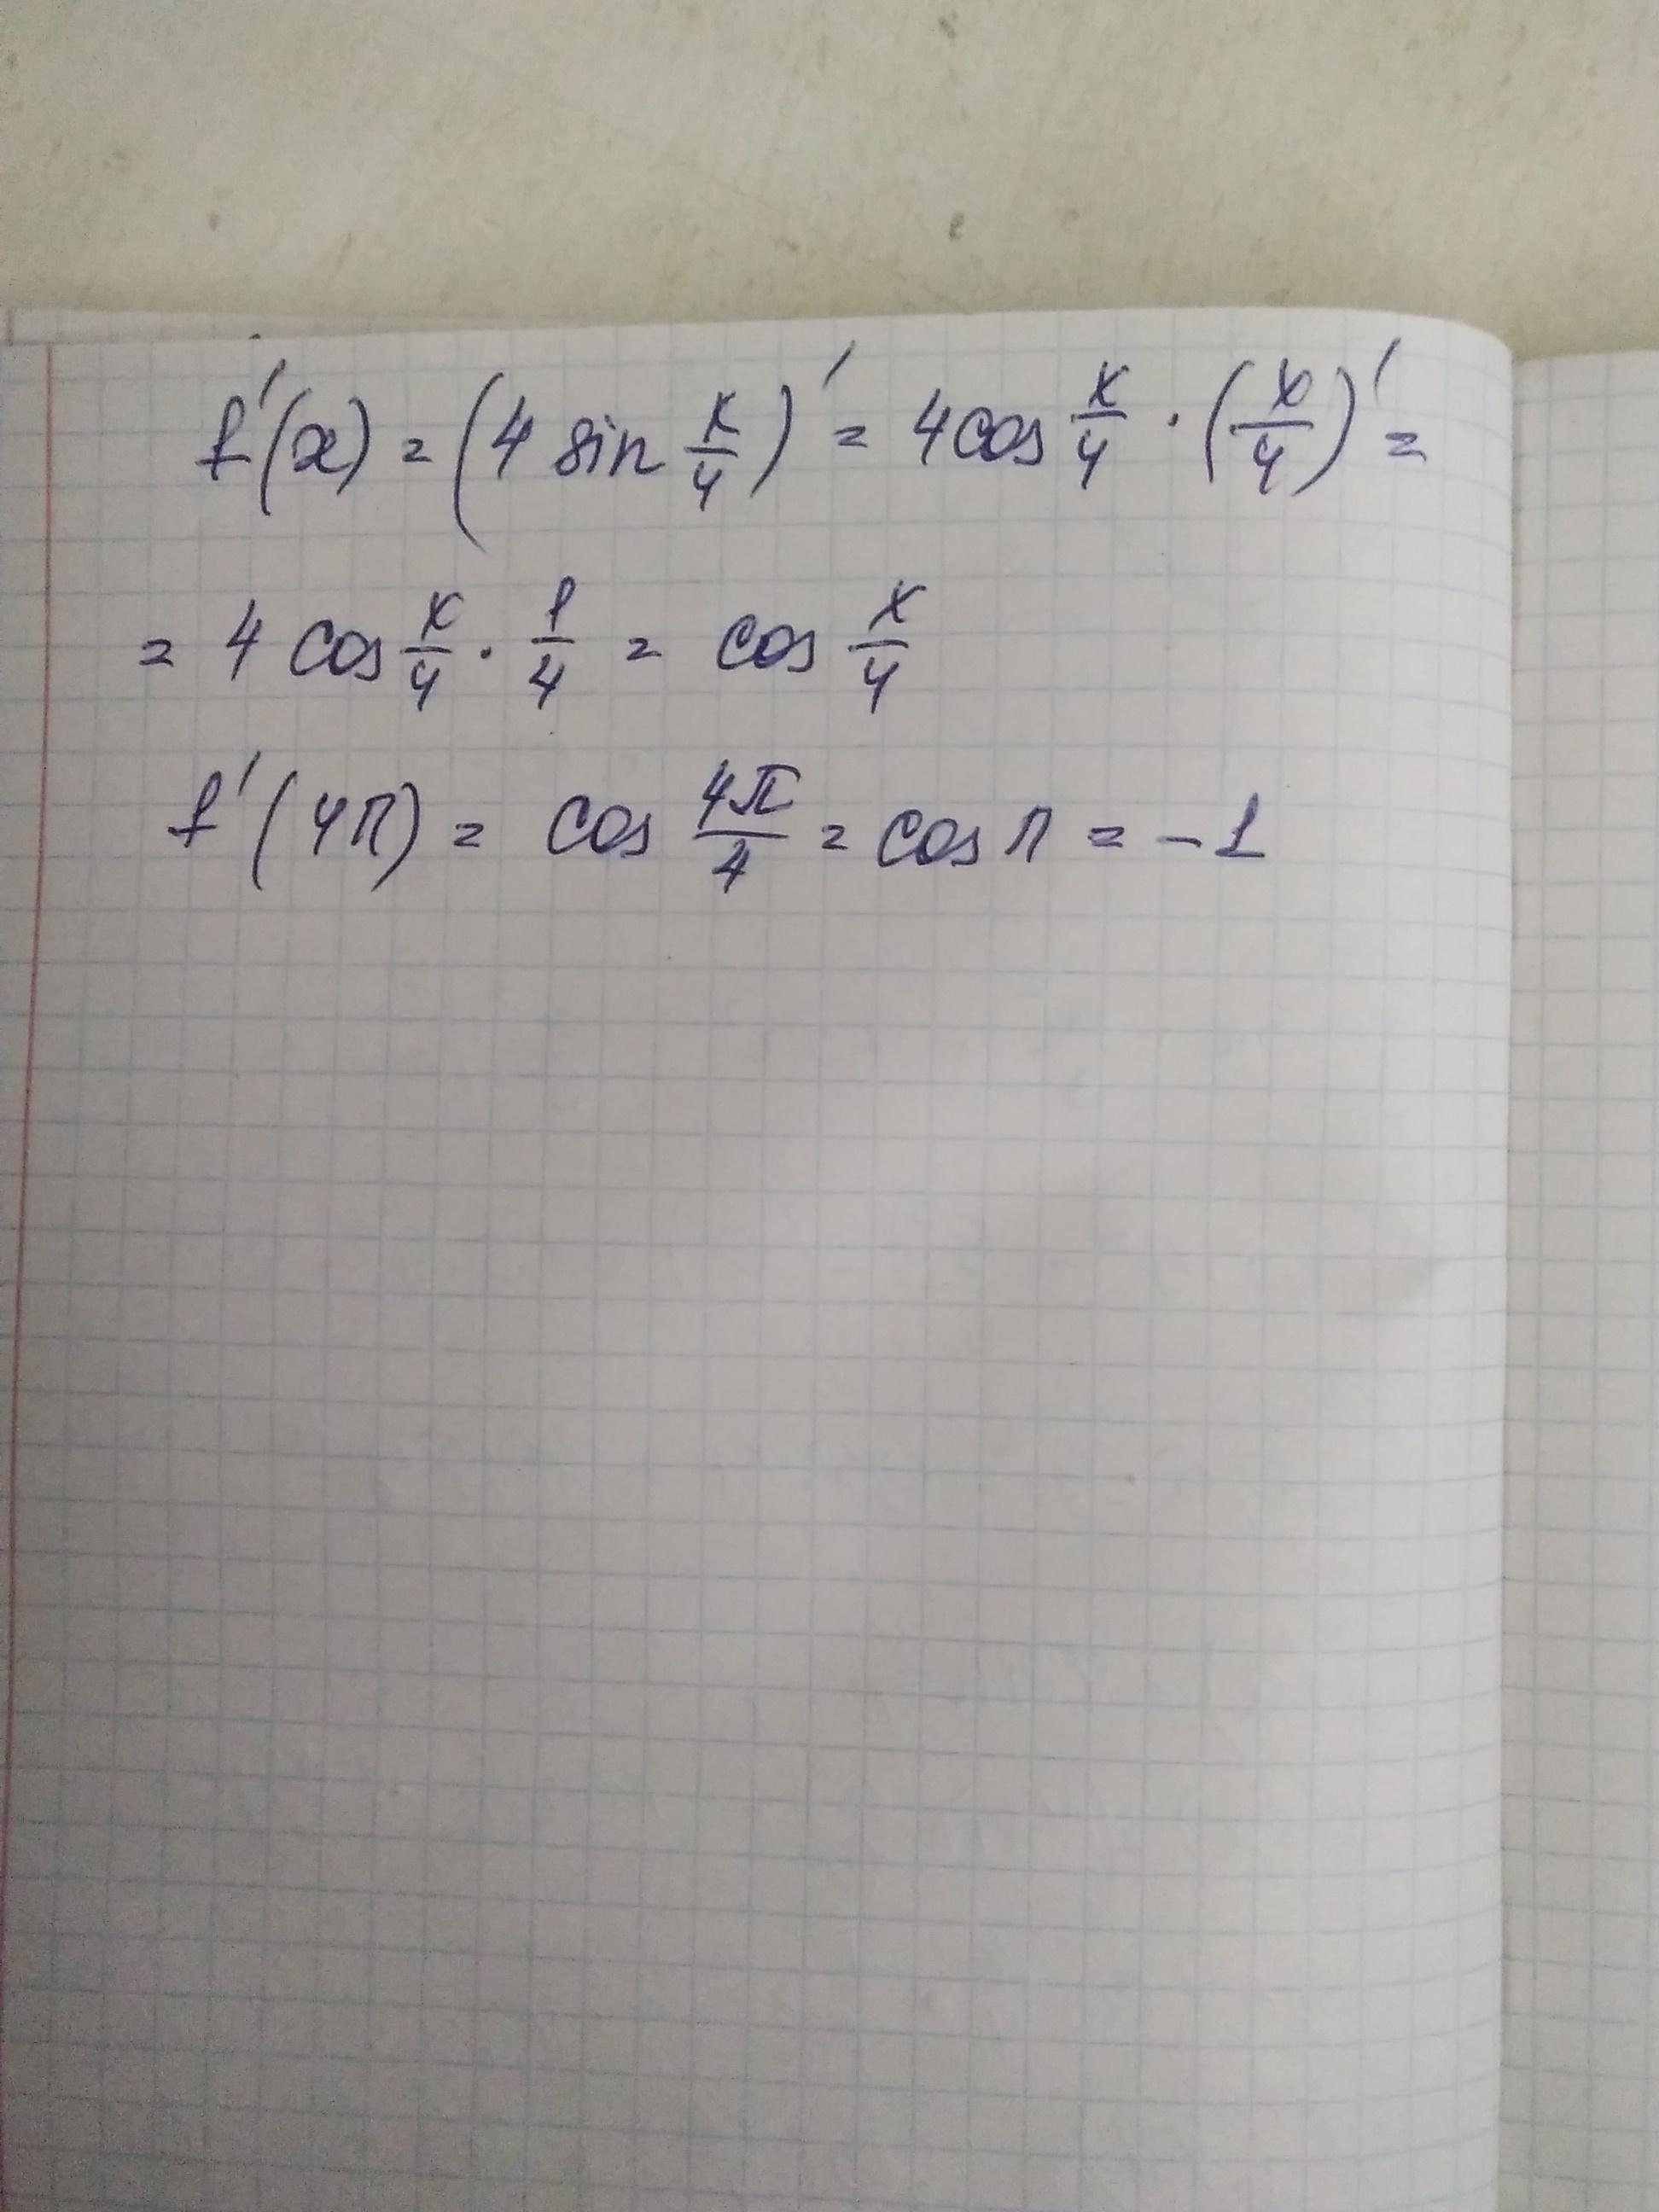 f'(x) = (4 sin x/4)' = 4cos x/4 · (x/4)' =
= 4 cos x/4 · 1/4 = cos x/4
f'(4π) = cos 4π/4 = cos π = -1